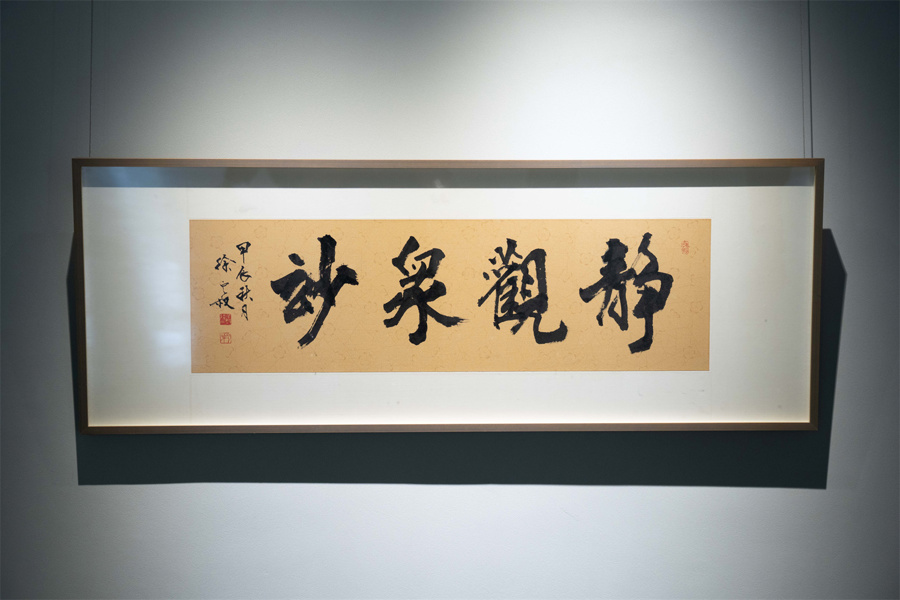 静觀衆玅
甲辰秋月
徐